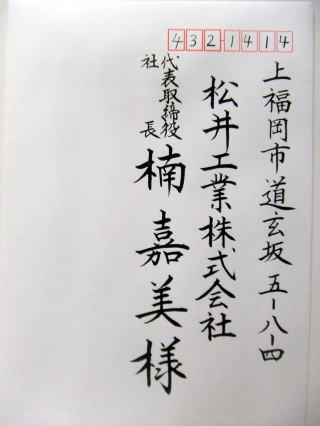 432-1414
上福岡市道玄坂五-八-四
松井工業株式会社
代表取締役
社長
楠嘉美様